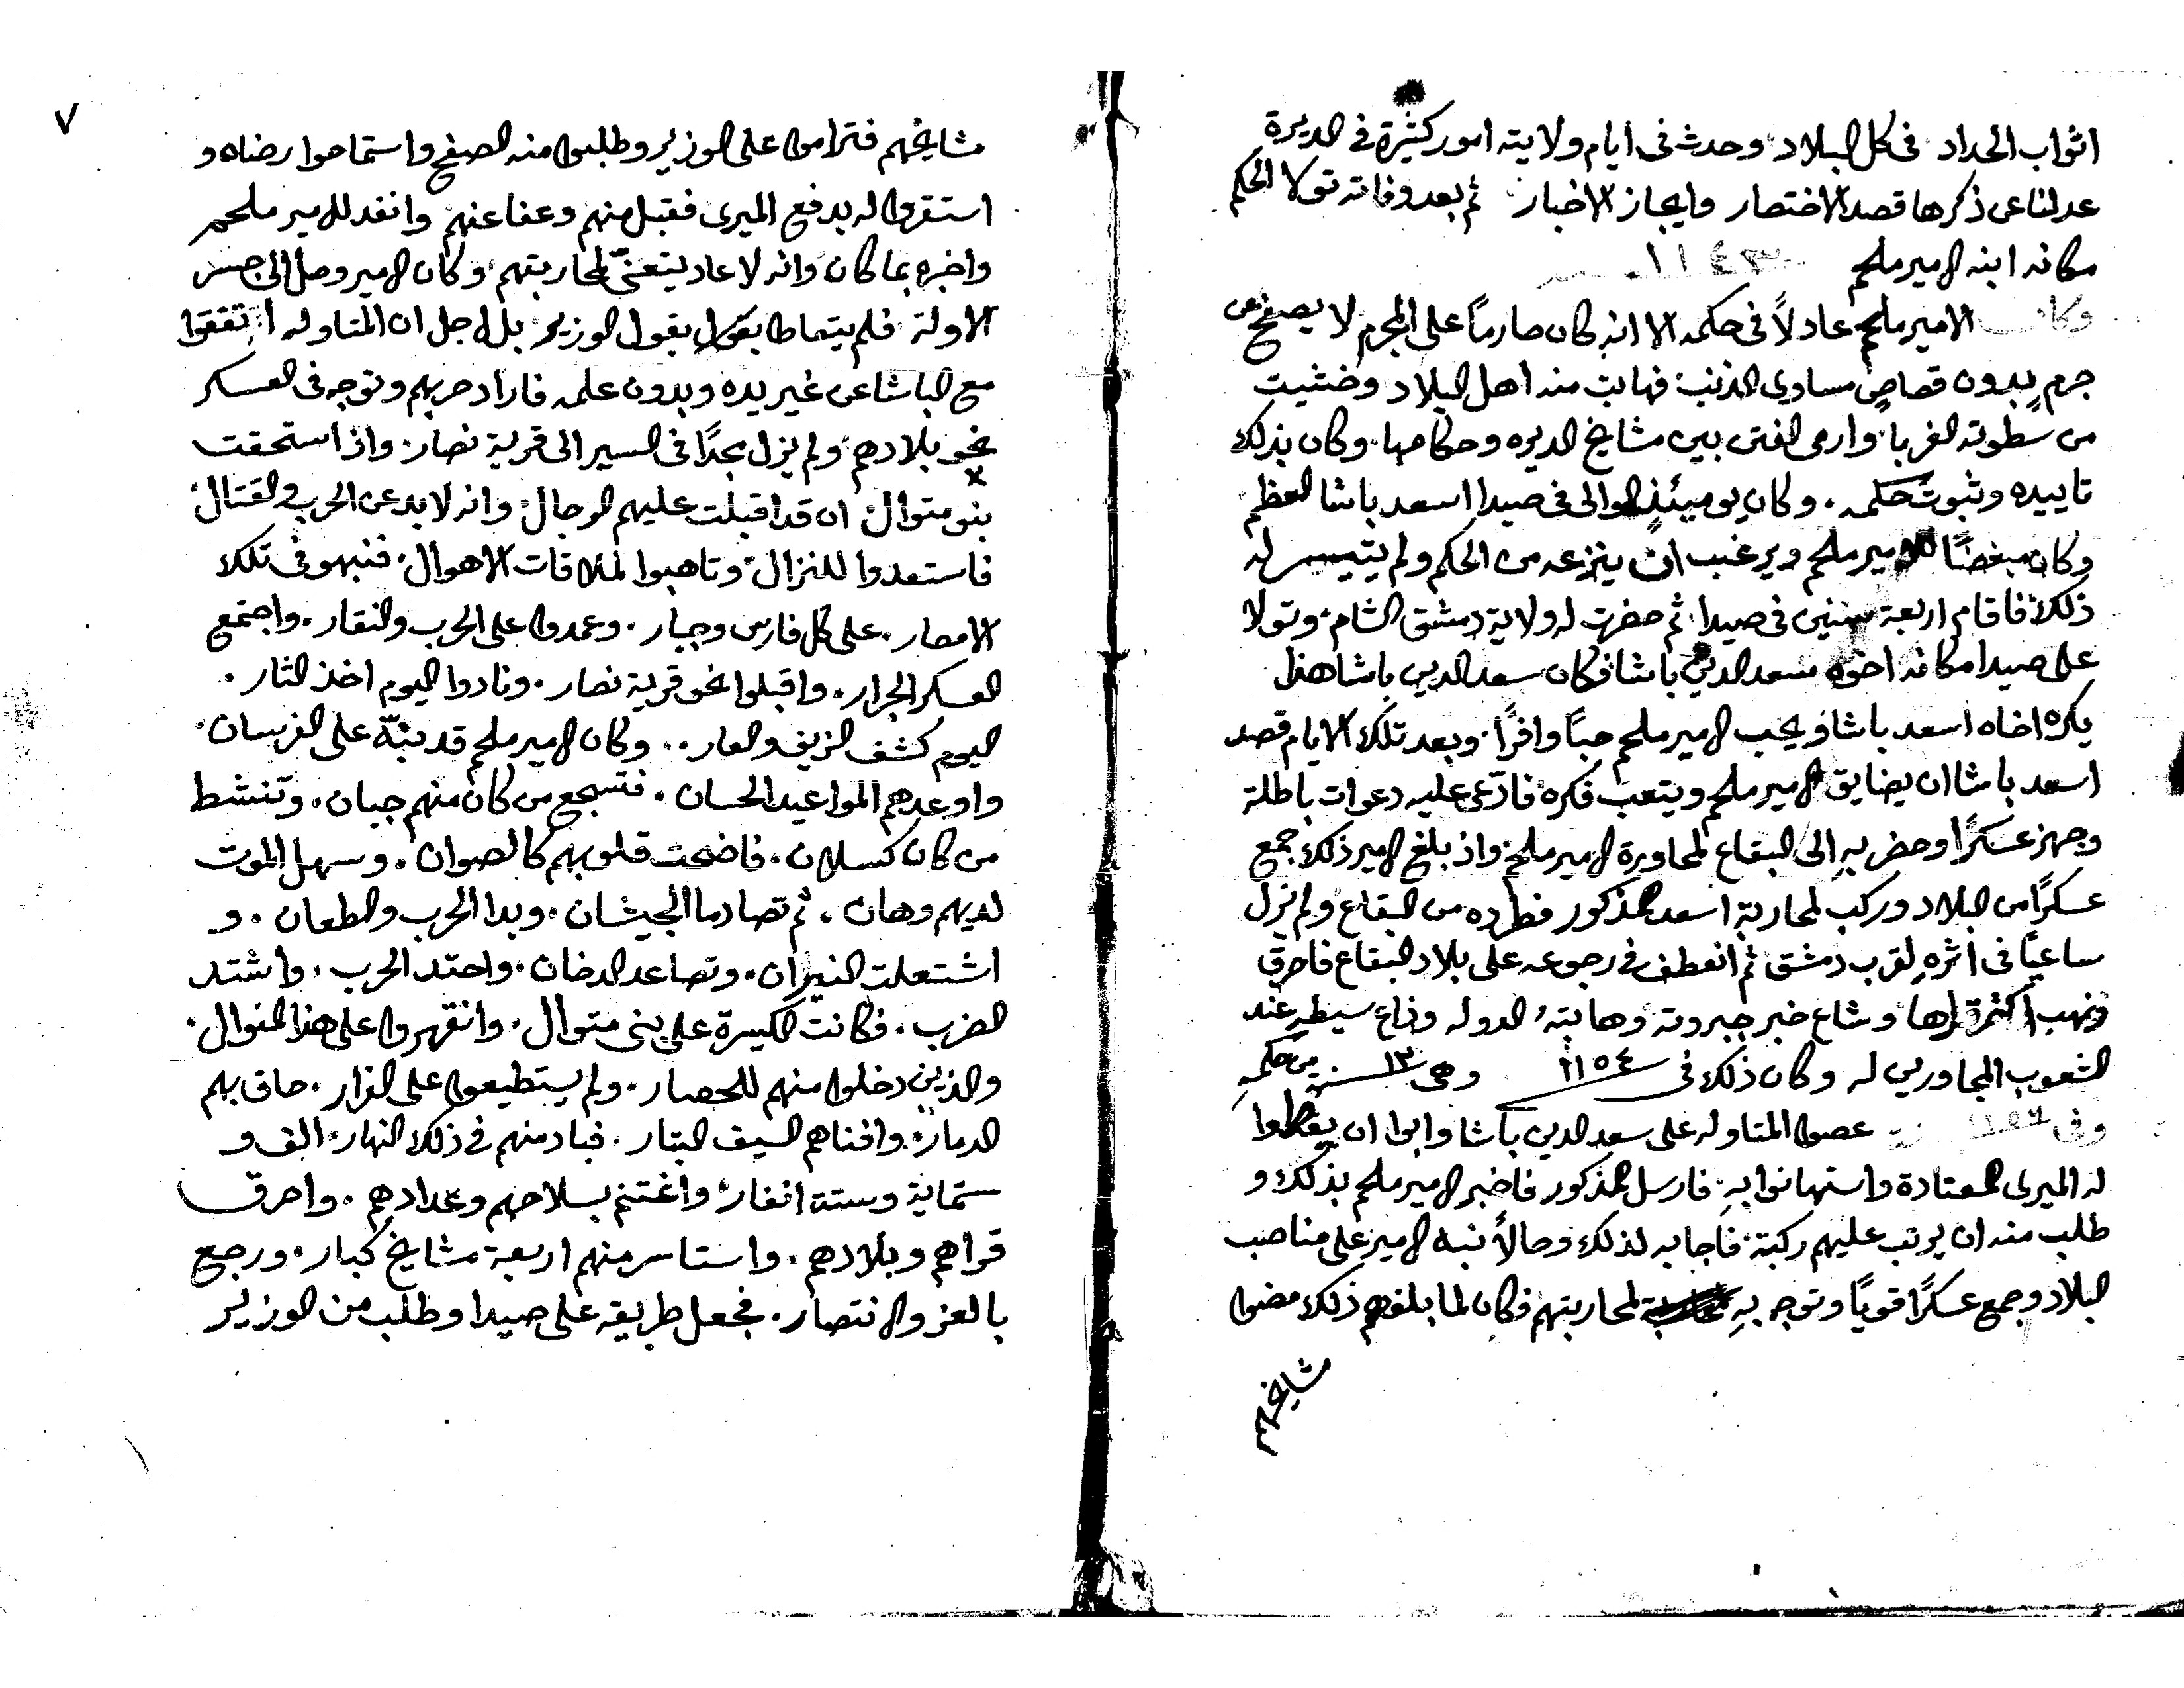 اثواب الحداد في كل البلاد وحدث في ايام ولايته امور كثيرة في الديرة
عدلنا عن ذكرها قصد الاختصار وايجاز الاخبار ثم بعد وفاته تولا الحكم
مكانه ابنه الامير ملحم
وكان الامير ملحم عادلاً في حكمه الا انه كان صارماً على المجرم لا يصفح عن
جرمٍ بدون قصاصٍ مساوي الذنب فهابت منه اهل البلاد وخشيت
من سطوته الغربا وارمى الفتن بين مشايخ الديره وحكامها وكان بذلك
تاييده وثبوت حكمه. وكان يوميئذٍ الوالى في صيدا اسعد باشا العظم
وكان مبغضاً للامير ملحم ويرغب ان ينزعه من الحكم ولم يتيسر له
ذلك فاقام اربعة سنين في صيدا ثم حضرت له ولاية دمشق الشام وتولا
على صيدا مكانه اخوه سعد الدين باشا فكان سعد الدين باشا هذا
يكره اخاه اسعد باشا ويحب الامير ملحم حباً وافراً وبعد تلك الايام قصد
اسعد باشا ان يضايق الامير ملحم ويتعب فكره فادّعى عليه دعوات باطلة
وجهز عسكراً وحضر بهِ الى البقاع لمحاورة الامير ملحم واذ بلغ الامير ذلك جمع
عسكراً من البلاد وركب لمحاربة اسعد المذكور فطرده من البقاع ولم يزل
ساعياً في اثرهِ لقرب دمشق ثم انعطف في رجوعه على بلاد البقاع فاحرق
ونهب اكثر قراها وشاع خبر جبروته وهابتهُ الدوله وذاع سيطه عند
الشعوب المجاورين له وكان ذلك في ١١٥٤ وهى ١٣ سنة من حكمهِ
وفي عصوا المتاوله على سعد الدين باشا وابوا ان يعطوا
له الميرى المعتادة واستهانوا بهِ فارسل المذكور فاخبر الامير ملحم بذلك و
طلب منه ان يرتب عليهم ركبة فاجابه لذلك وحالاً نبه الامير على مناصب
البلاد وجمع عسكراً قوياً وتوجه بهِ لمحاربتهم فكان لما بلغهم ذلك مضوا
مشايخهم
٧
مشايخهم فتراموا على الوزير وطلبوا منه الصفح واستماحوا رضاه و
استقروا له بدفع الميرى فقبل منهم وعفا عنهم وانفد للامير ملحم
واخبره بما كان وانه لا عاد يتعنّى لمحاربتهم وكان الامير وصل الى جسر
الاولة فلم يتعاطا بقول الوزير بل لاجل ان المتاوله اتفقوا
مع الباشا عن غير يده وبدون علمه فاراد حربهم وتوجه في العسكر
نحو بلادهم ولم يزل مجدًا في السير الى قرية نصار واذ استحقت
بنو متوال ان قد اقبلت عليهم الرجال وانه لا بد عن الحرب والقتال
فاستعدوا للنزال وتاهبوا لملاقات الاهوال. فنبهو في تلك
الامصار. على كل فارس وجبار. وعمدوا على الحرب والنقار. واجتمع
العسكر الجرار. واقبلوا نحو قرية نصار. ونادوا اليوم اخذ الثار.
اليوم كشف الزيف والعار.. وكان الامير ملحم قد نبّه على الفرسان.
واوعدهم المواعيد الحسان. فتسجع من كان منهم جبان. وتنشط
من كان كسلان. فاضحت قلوبهم كالصوان. وسهل الموت
لديهم وهان. ثم تصادما الجيشان. وبدا الحرب والطعان. و
اشتعلت النيران. وتصاعد الدخان. واحتد الحرب. واشتد
الضرب. فكانت الكسرة على بنى متوال. وانقهروا على هذا المنوال.
والذين دخلوا منهم للحصار. ولم يستطيعوا على الفرار. حاق بهم
الدمار. وافناهم السيف البتار. فباد منهم في ذلك النهار. الف و
ستماية وستة انفار. واغتنم بسلاحهم وعدادهم. واحرق
قراهم وبلادهم. واستاسر منهم اربعة مشايخ كبار. ورجع
بالعز والانتصار. فجعل طريقه على صيدا وطلب من الوزير